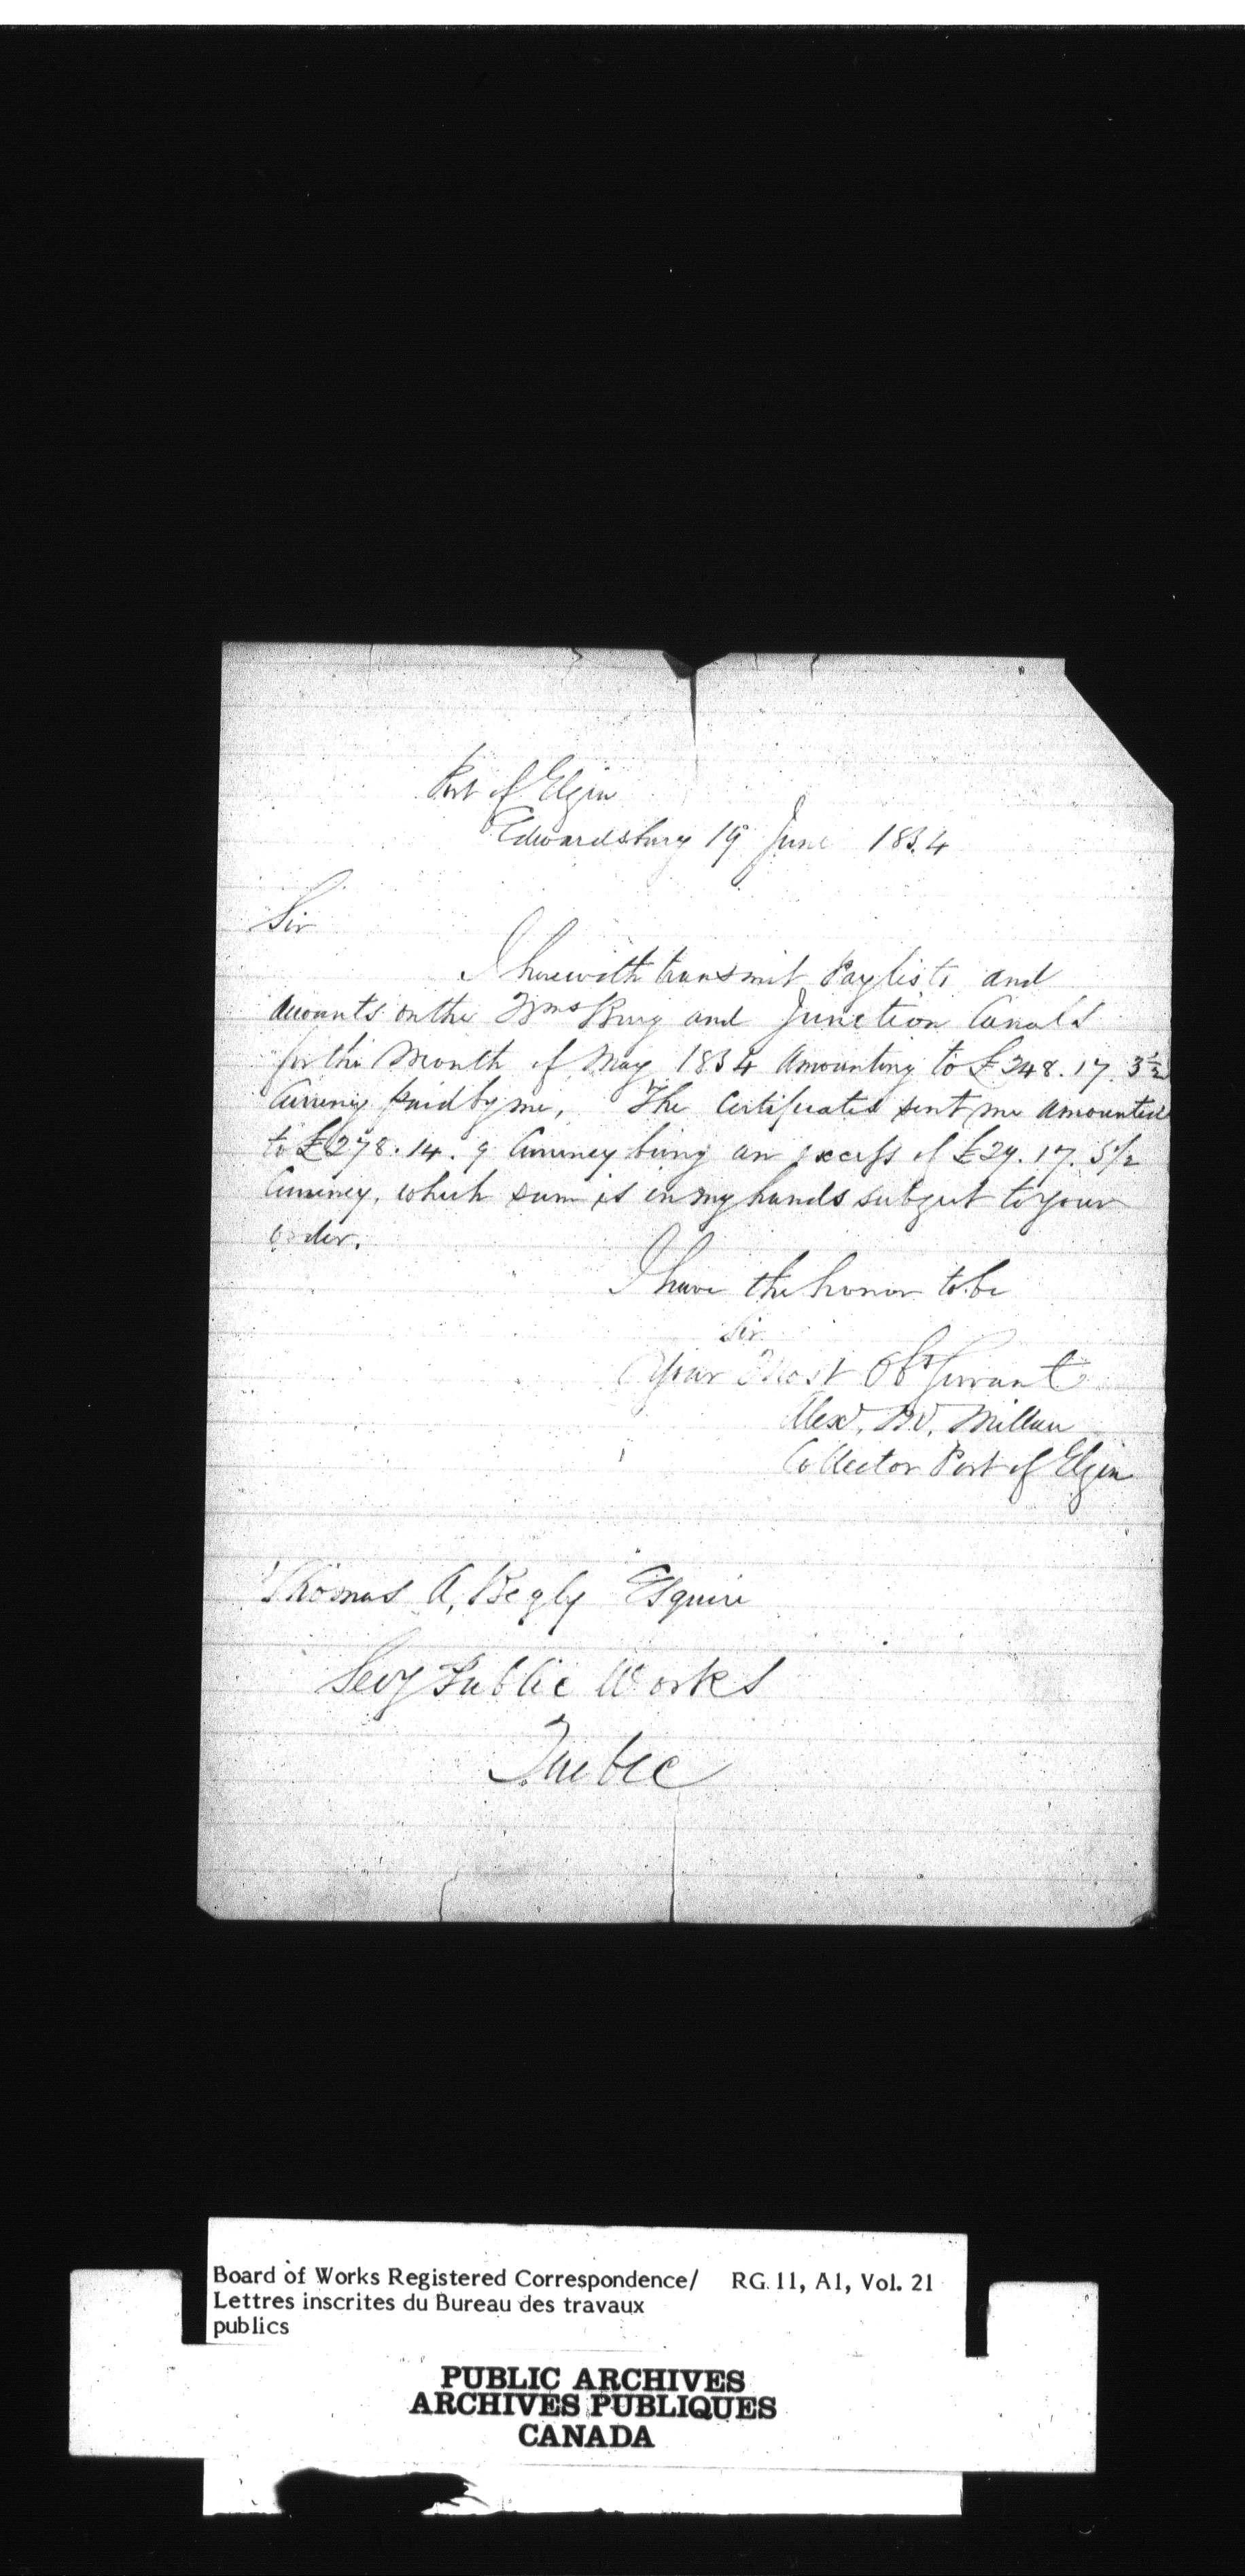 Port of Elgin
Edwardsburg 19 June 1854
Sir
I herewith transmit Paylists and
Accounts on the Wmsburg and Junction Canals
for the Month of May 1854 Amounting to £248.17.3½
Currency paid by me, The Certificates sent me amounted
to £278.14.9 Currency being an excess of £29.17.5½
Currency, which sum is in my hands subject to your
order.
I have the honor to be
Sir
Your Most Obt Servant
Alexr. Mc. Millan
Collector Port of Elgin
Thomas A, Begly Esquire
Secy Public Works
Quebec
Board of Works Registered Correspondence/ RG 11, A1, Vol. 21
Lettres inscrites du Bureau des travaux
publics
PUBLIC ARCHIVES
ARCHIVES PUBLIQUES
CANADA